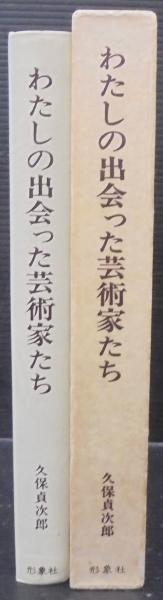 わたしの出会った芸術家たち
久保貞次郎
形象社
わたしの出会った芸術家たち
久保貞次郎
形象社